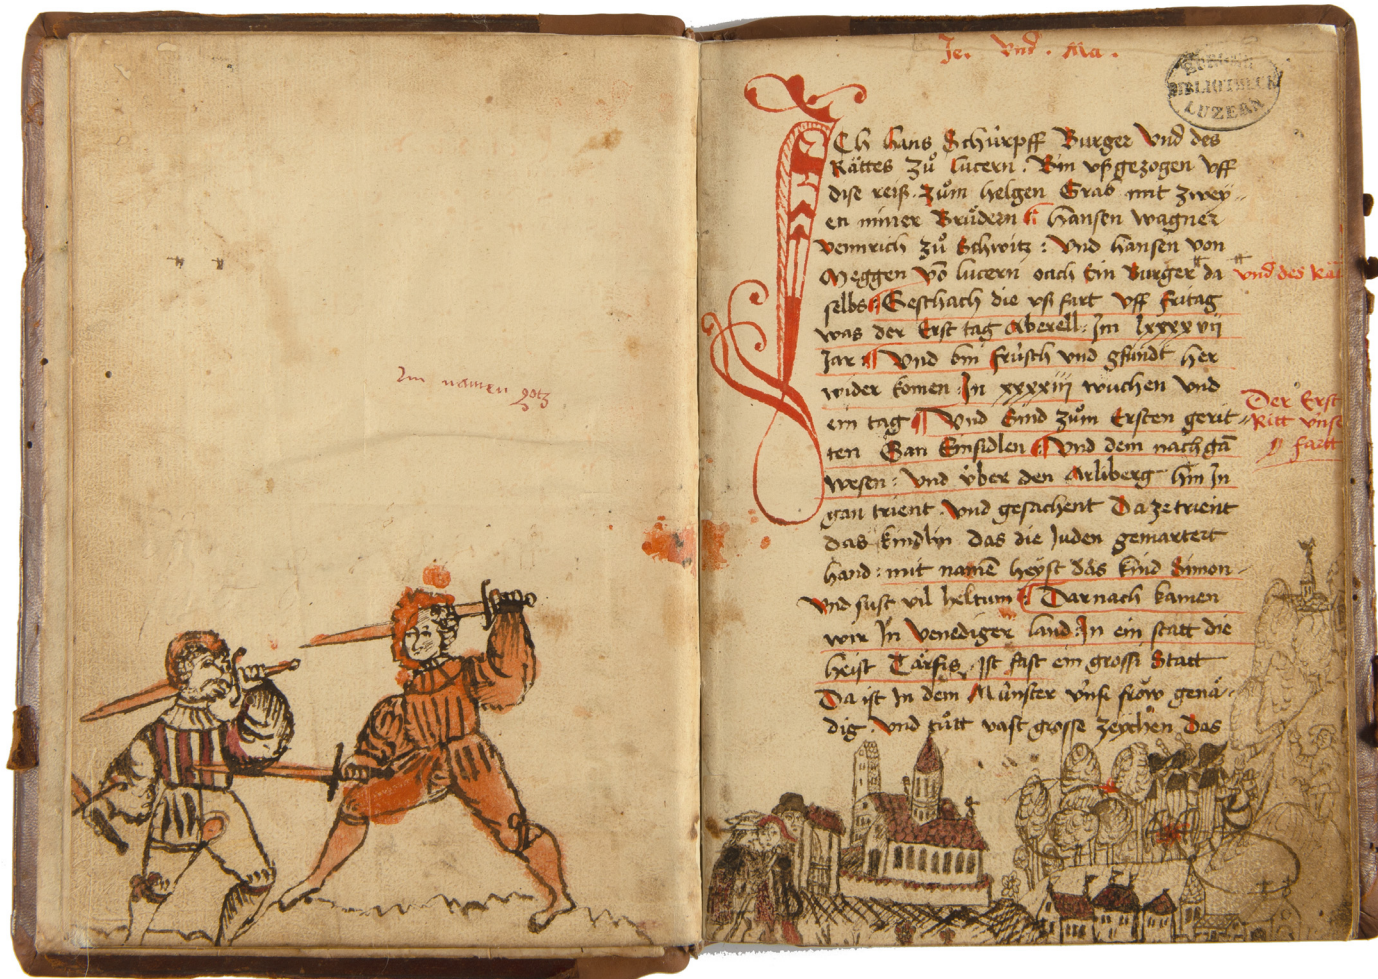 Im namen gotz
Je. vnd. Ma.
BÜRGER
BIBLIOTHECK
LUZERN
ICh hans Schürpff Burger vnd des
Rättes zů lucern. Bin vß gezogen vff
dise reiß. zům helgen Grab mit zwey-
en miner Brüdern hansen wagner
vennrich zů Schwitz: vnd hansen von
Meggen võ lucern och Ein Burger da vnd des Rä
selbs Geschach die vß fart vff fritag
was der Erst tag Aberell: Im lxxxxvii
Jar: Vnd bin frůsch vnd gsundt her
wider komen In xxxxiii wuchen vnd
ein tag Vnd Sind zům Ersten gerit-
ten Gan Einsidlen Vnd dem nach gã
Der Erst
Ritt vnse
fartt
wesen: vnd über den Arliberg hin In
gan trient. vnd gesachent Da ze trient
das kindlin das die Juden gemartert
hand: mit namẽ heyst das kind Simon
vnd sust vil heltum Darnach kamen
wir In venediger land: In ein statt die
heist Tärfis. Ist fast ein grossi Statt
Da ist In dem Münster vnsi frow genä-
dig. vnd tůtt vast grosse zeychen Das